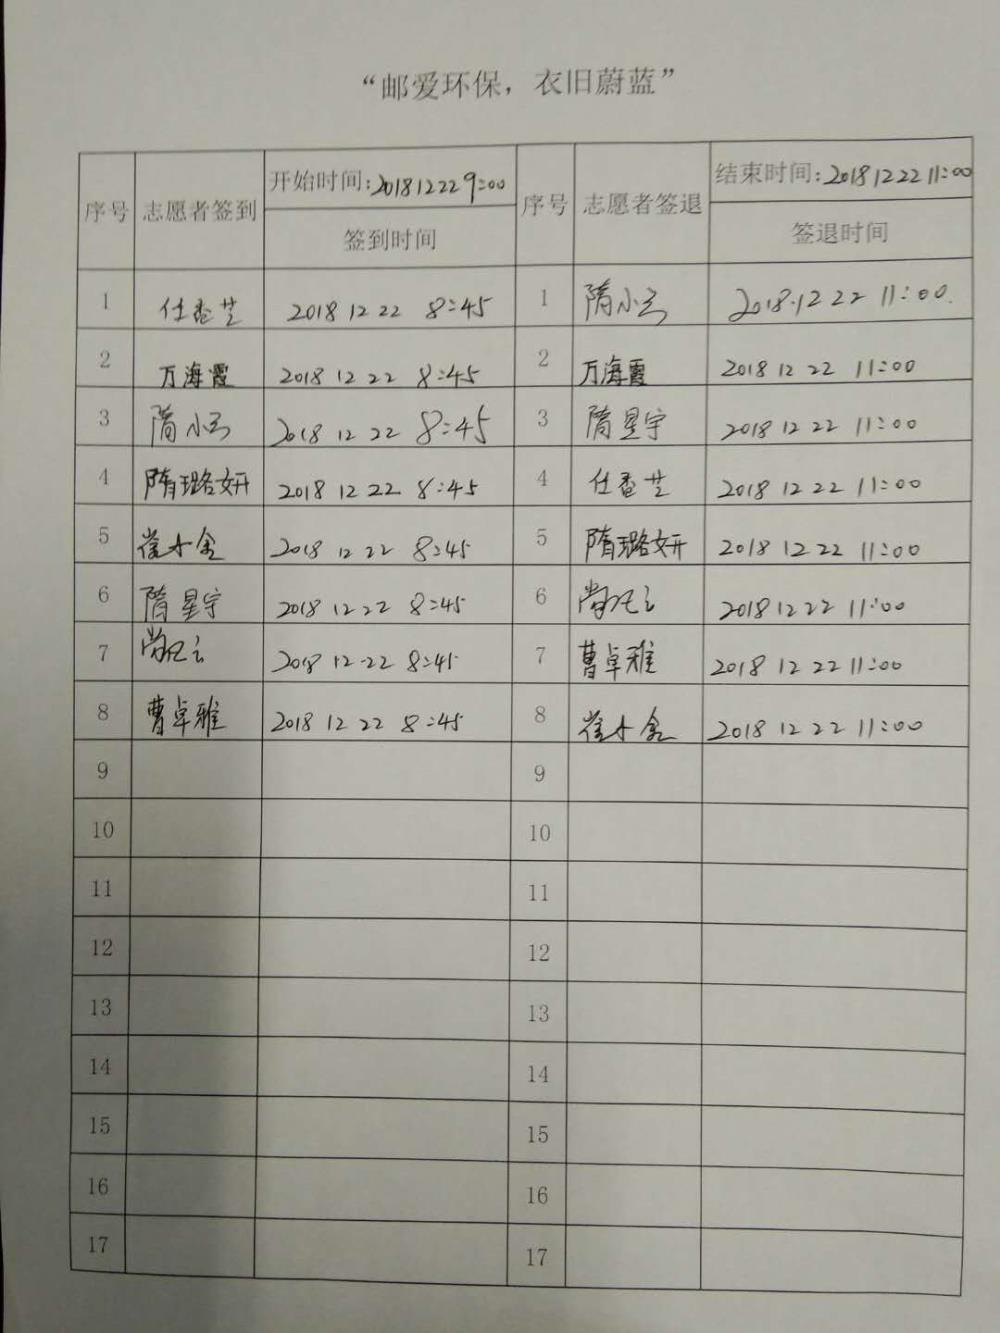 “邮爱环保，衣旧蔚蓝”
序号 志愿者签到 开始时间:2018 12 22 9:00 序号 志愿者签退 结束时间:2018 12 22 11:00
签到时间 签退时间
1 任香芝 2018 12 22 8:45 1 隋小云 2018.12 22 11:00.
2 万海霞 2018 12 22 8:45 2 万海霞 2018 12 22 11:00
3 隋小云 2018 12 22 8:45 3 隋星宇 2018 12 22 11:00
4 隋璐妍 2018 12 22 8:45 4 任香芝 2018 12 22 11:00
5 2018 12 22 8:45 5 隋璐妍 2018 12 22 11:00
6 隋星宇 2018 12 22 8:45 6 2018 12 22 11:00
7 2018 12 22 8:45 7 曹卓雅 2018 12 22 11:00
8 曹卓雅 2018 12 22 8:45 8 2018 12 22 11:00
9 9
10 10
11 11
12 12
13 13
14 14
15 15
16 16
17 17